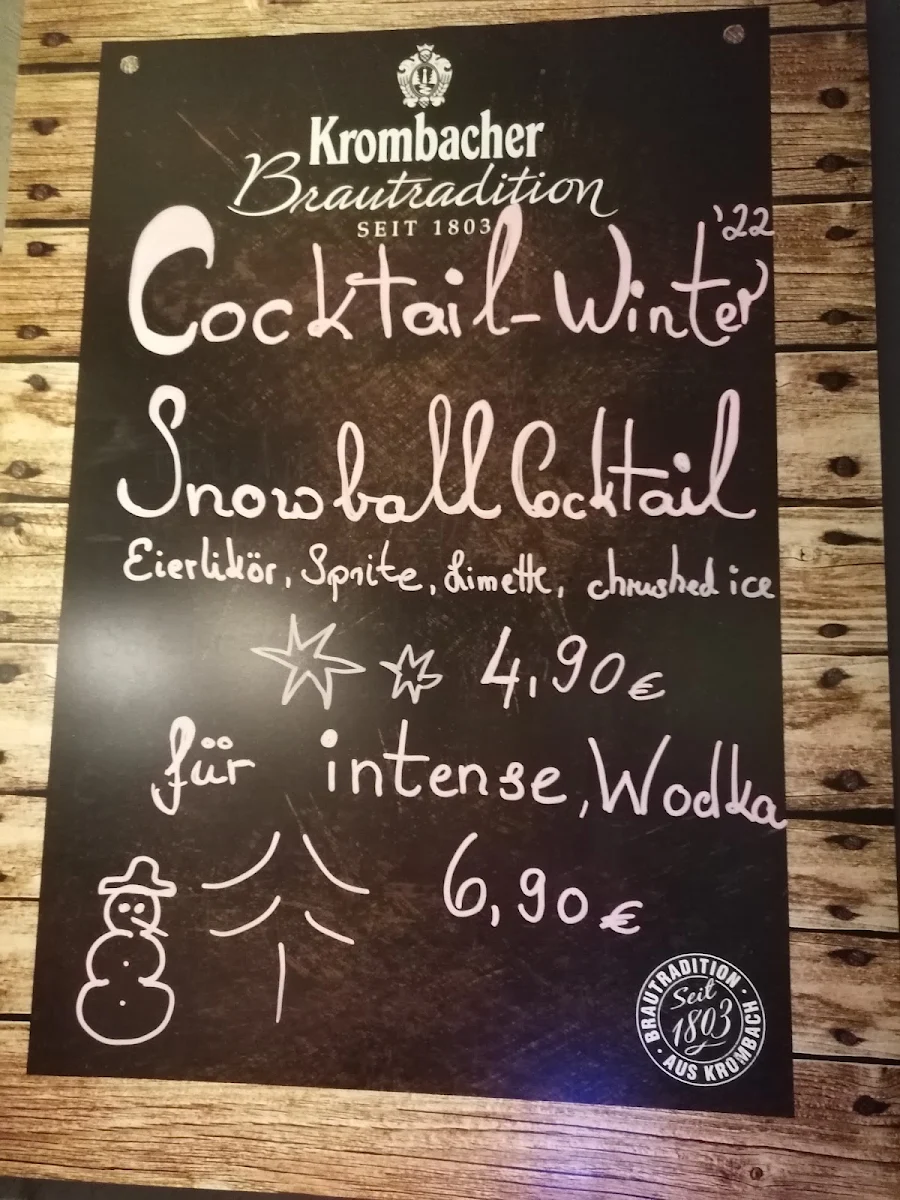 Krombacher
Brautradition
SEIT 1803
'22
Cocktail-Winter
Snowball Cocktail
Eierlikör, Sprite, Limette, chrushed ice
4,90€
für intense, Wodka
6,90€
BRAUTRADITION ·
Seit
1803
· AUS KROMBACH